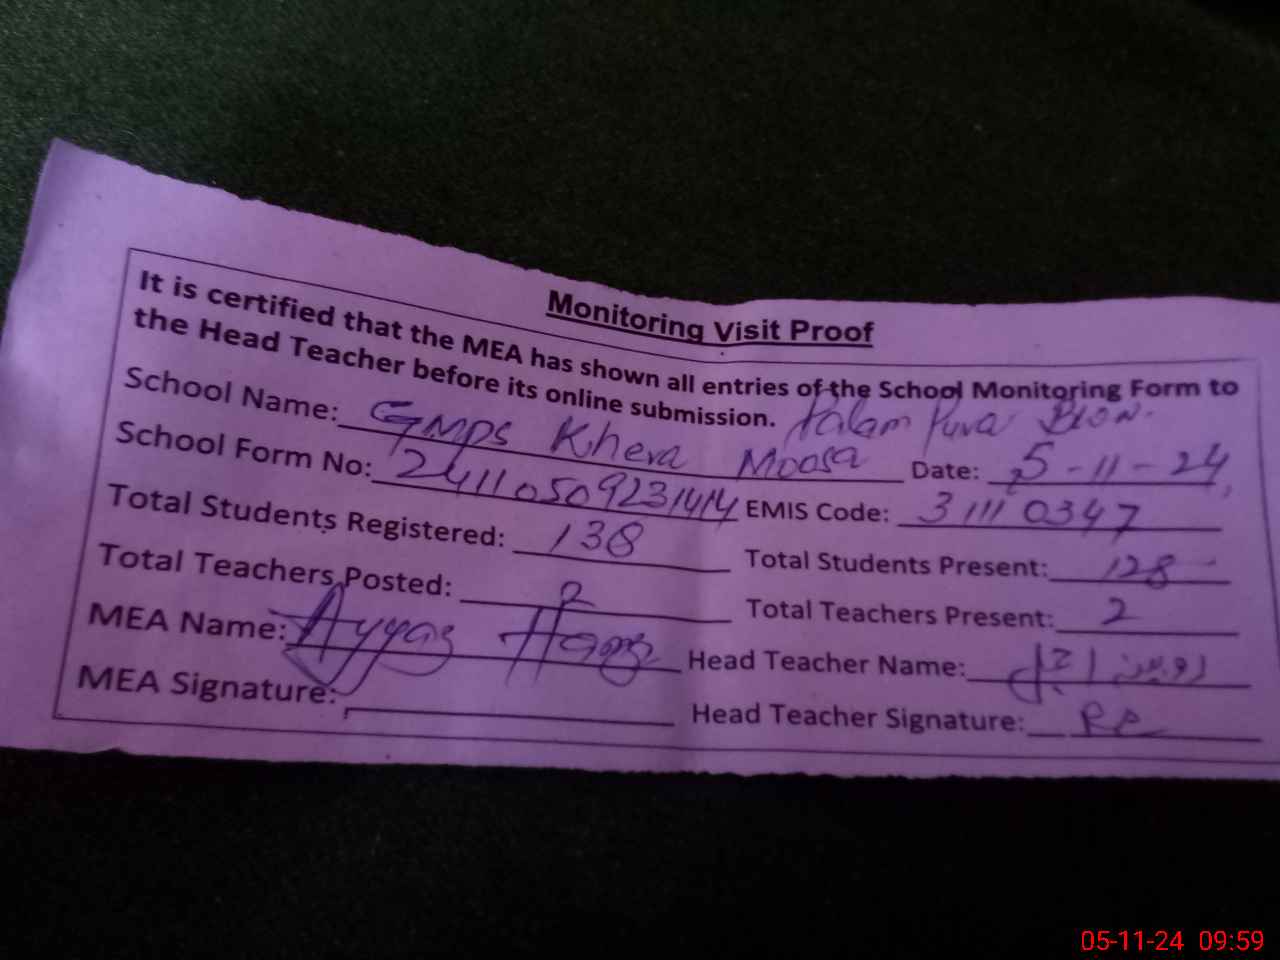 Monitoring Visit Proof
It is certified that the MEA has shown all entries of the School Monitoring Form to
the Head Teacher before its online submission.
School Name: GMPS Kheva Moosa Date: 5-11-24
School Form No: 24110509231414 EMIS Code: 31110347
Total Students Registered: 138 Total Students Present: 128
Total Teachers Posted: 2 Total Teachers Present: 2
MEA Name: Head Teacher Name:
MEA Signature: Head Teacher Signature:
05-11-24 09:59